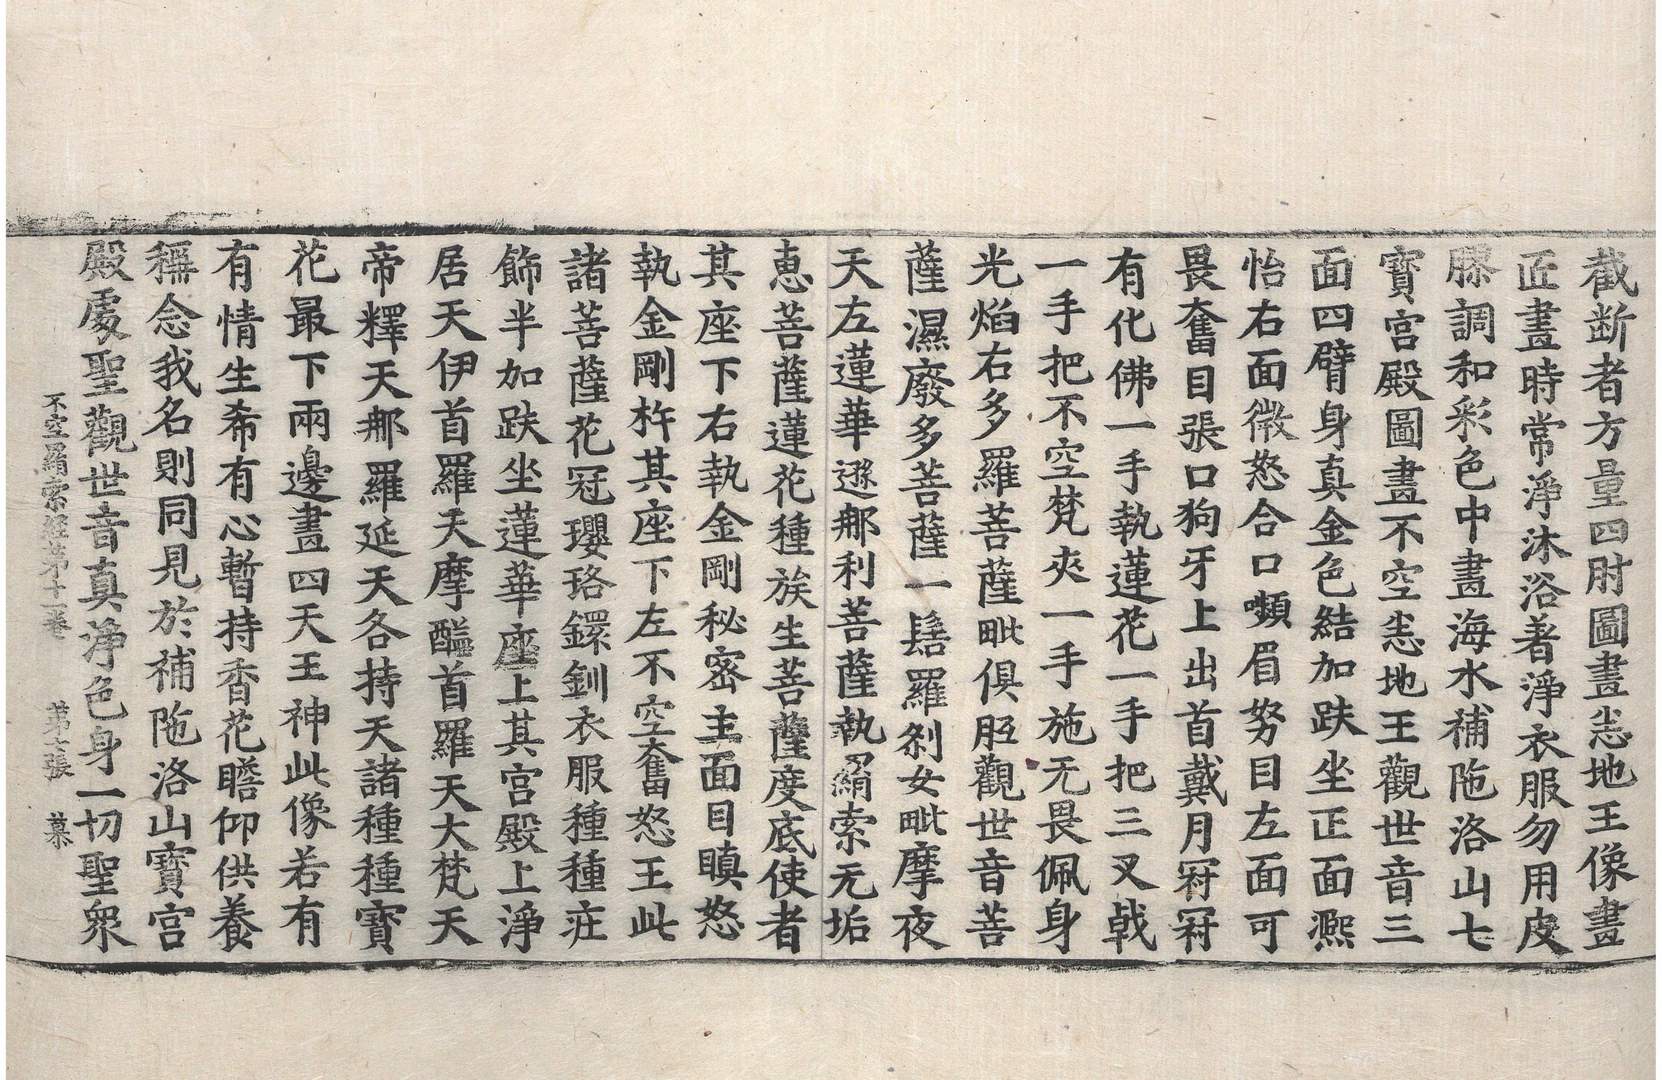 截断者方量四肘圖畫恙地王像畫
匠畫時常淨沐浴著淨衣服勿用皮
膠調和彩色中畫海水補陁洛山七
寶宮殿圖畫不空恙地王觀世音三
面四臂身真金色結加趺坐正面熈
怡右面微怒合口嚬眉努目左面可
畏奮目張口狗牙上出首戴月冠冠
有化佛一手執蓮花一手把三叉戟
一手把不空梵夾一手施无畏佩身
光焰右多羅菩薩毗俱胝觀世音菩
薩濕廢多菩薩一髻羅剎女毗摩夜
天左蓮華遜那利菩薩執羂索无垢
惠菩薩蓮花種族生菩薩度底使者
其座下右執金剛秘密主面目瞋怒
執金剛杵其座下左不空奮怒王此
諸菩薩花冠瓔珞鐶釧衣服種種莊
飾半加趺坐蓮華座上其宮殿上淨
居天伊首羅天摩醯首羅天大梵天
帝釋天那羅延天各持天諸種種寶
花最下兩邊畫四天王神此像若有
有情生希有心暫持香花瞻仰供養
稱念我名則同見於補陁洛山寶宮
殿處聖觀世音真淨色身一切聖衆
不空羂索經第十一卷　第七張　慕